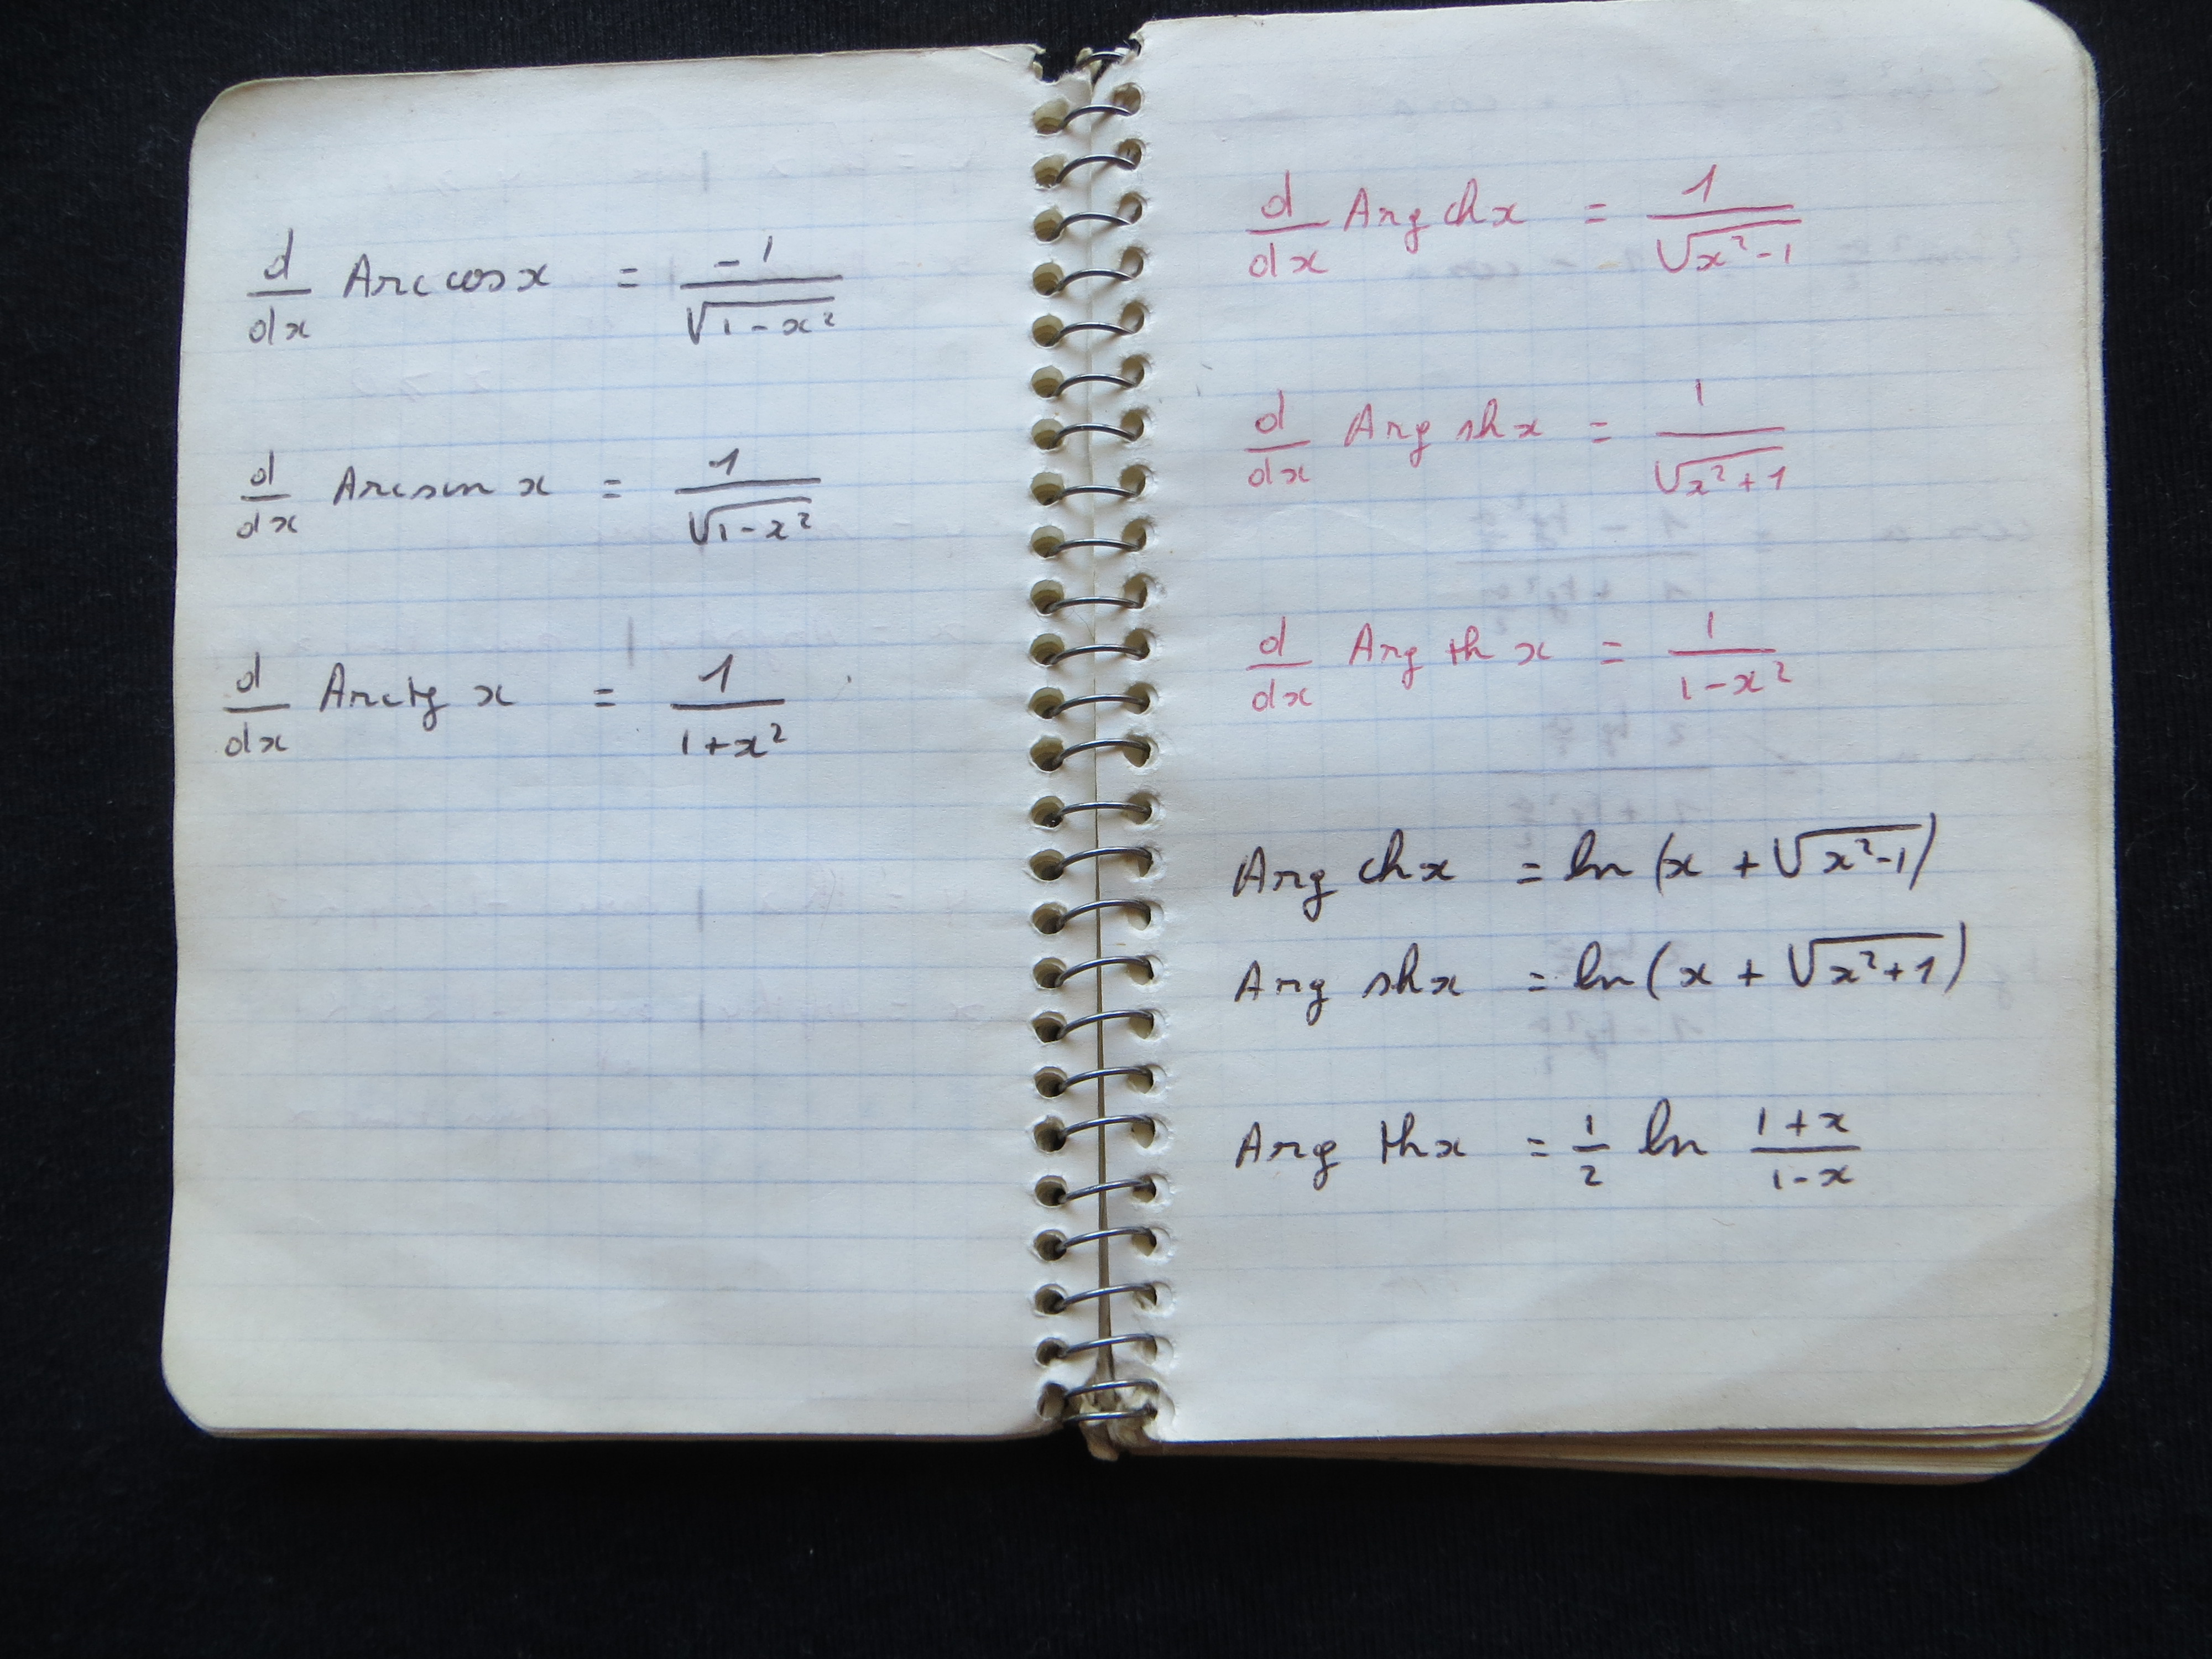 d/dx Arc cos x = -1/√(1-x²)
d/dx Arcsin x = 1/√(1-x²)
d/dx Arctg x = 1/(1+x²)
d/dx Arg ch x = 1/√(x²-1)
d/dx Arg sh x = 1/√(x²+1)
d/dx Arg th x = 1/(1-x²)
Arg ch x = ln (x + √(x²-1))
Arg sh x = ln (x + √(x²+1))
Arg th x = 1/2 ln (1+x)/(1-x)